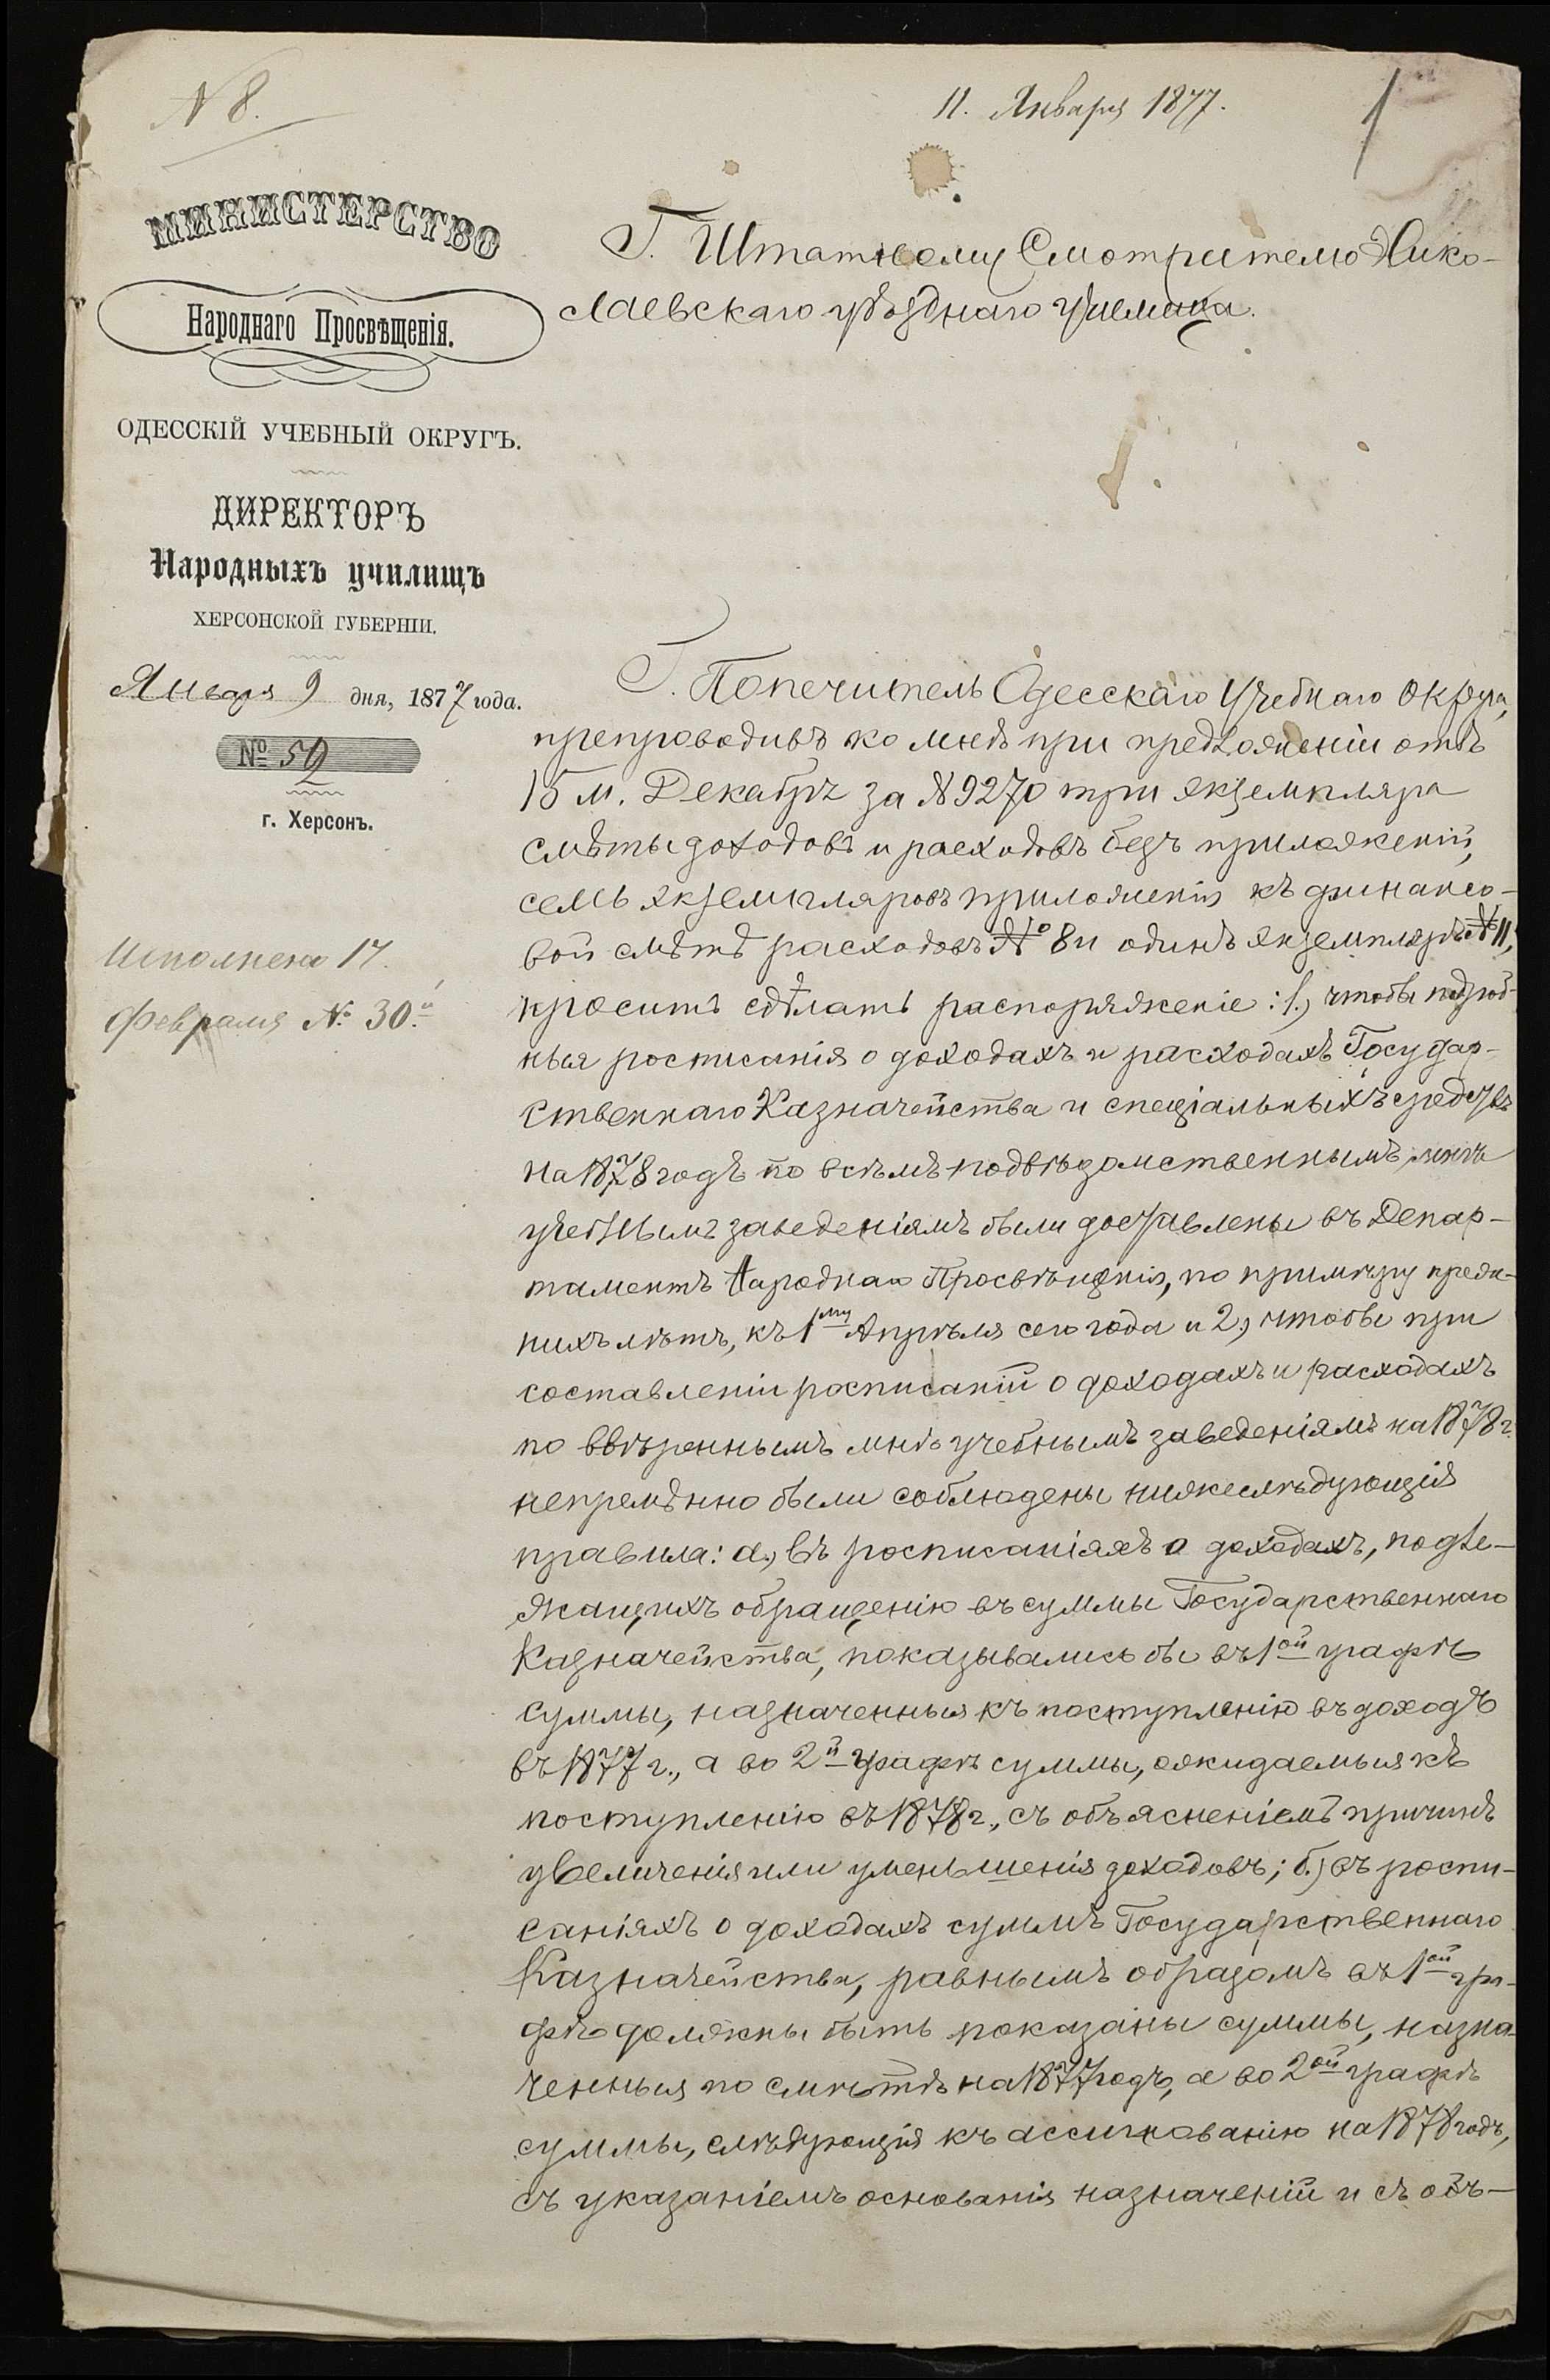 N 8.
11. Января 1877.
1
МИНИСТЕРСТВО
Народнаго Просвѣщенія.
ОДЕССКІЙ УЧЕБНЫЙ ОКРУГЪ.
ДИРЕКТОРЪ
Народныхъ училищъ
ХЕРСОНСКОЙ ГУБЕРНІИ.
Января 9 дня, 1877 года.
№ 59
г. Херсонъ.
Исполнено 17.
Февраля № 30.й
Г. Штатному Смотрителю Нико-
лаевскаго уѣзднаго училища.
Г. Попечитель Одесскаго Учебнаго Округа,
препроводивъ ко мнѣ при предложеніи отъ
15 м. Декабря за N 9270 три экземпляра
смѣты доходовъ и расходовъ безъ приложеній,
семь экземпляровъ приложенія къ финансо-
вой смѣтѣ расходовъ № 8 и одинъ экземпляръ № 11,
проситъ сдѣлать распоряженіе: 1.) чтобы подроб-
ныя росписанія о доходахъ и расходахъ Государ-
ственнаго Казначейства и спеціальныхъ средствъ
на 1878 годъ по всѣмъ подвѣдомственнымъ мнѣ
учебнымъ заведеніямъ были доставлены въ Депар-
таментъ Народнаго Просвѣщенія, по примѣру преж-
нихъ лѣтъ, къ 1му Апрѣля сего года и 2.) чтобы при
составленіи росписаній о доходахъ и расходахъ
по ввѣреннымъ мнѣ учебнымъ заведеніямъ на 1878 г.
непремѣнно были соблюдены нижеслѣдующія
правила: а.) въ росписаніяхъ о доходахъ, подле-
жащихъ обращенію въ суммы Государственнаго
Казначейства, показывались бы въ 1ой графѣ
суммы, назначенныя къ поступленію въ доходъ
въ 1877 г., а во 2й графѣ суммы, ожидаемыя къ
поступленію въ 1878 г., съ объясненіемъ причинъ
увеличенія или уменьшенія доходовъ; б.) въ роспи-
саніяхъ о доходахъ суммъ Государственнаго
Казначейства, равнымъ образомъ въ 1ой гра-
фѣ должны быть показаны суммы, назна-
ченныя по смѣтѣ на 1877 годъ, а во 2ой графѣ
суммы, слѣдующія къ ассигнованію на 1878 годъ,
съ указаніемъ основанія назначеній и съ объ-